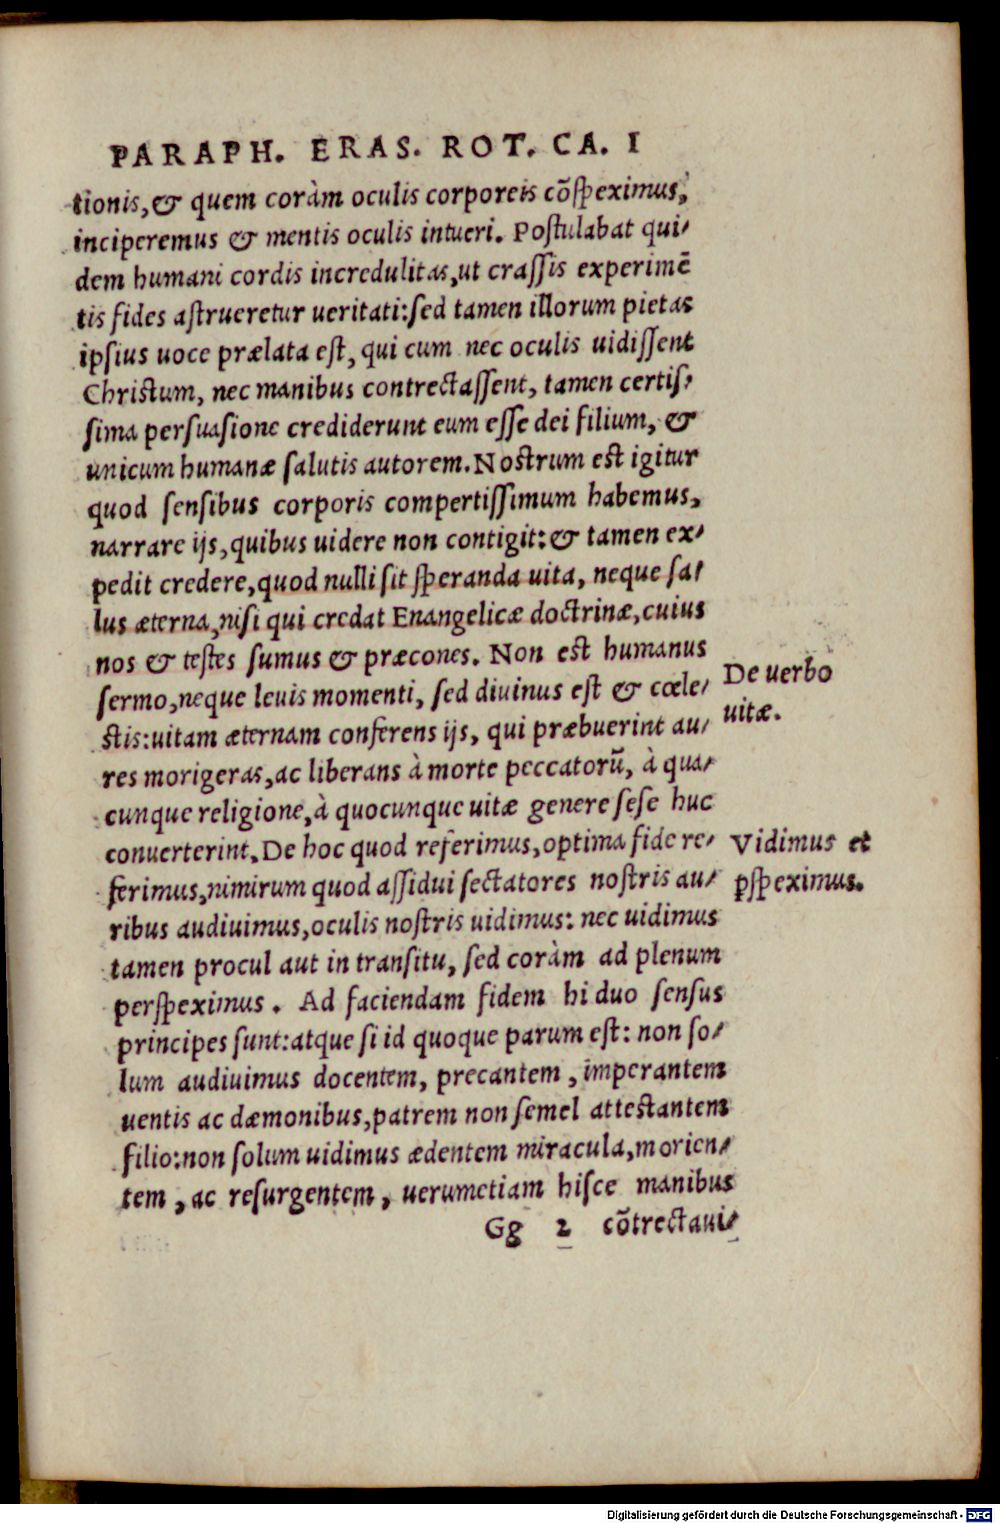 PARAPH. ERAS. ROT. CA. I
tionis, & quem coràm oculis corporeis cõspeximus,
inciperemus & mentis oculis intueri. Postulabat qui/
dem humani cordis incredulitas, ut crassis experimē
tis fides astrueretur ueritati: sed tamen illorum pietas
ipsius uoce prælata est, qui cum nec oculis uidissent
Christum, nec manibus contrectassent, tamen certis/
sima persuasione crediderunt eum esse dei filium, &
unicum humanæ salutis autorem. Nostrum est igitur
quod sensibus corporis compertissimum habemus,
narrare ijs, quibus uidere non contigit: & tamen ex/
pedit credere, quod nulli sit speranda uita, neque sa/
lus æterna, nisi qui credat Enangelicæ doctrinæ, cuius
nos & testes sumus & præcones. Non est humanus
sermo, neque leuis momenti, sed diuinus est & cœle/
stis: uitam æternam conferens ijs, qui præbuerint au/
res morigeras, ac liberans à morte peccatorũ, à qua/
cunque religione, à quocunque uitæ genere sese huc
conuerterint. De hoc quod referimus, optima fide re/
ferimus, nimirum quod assidui sectatores nostris au/
ribus audiuimus, oculis nostris uidimus: nec uidimus
tamen procul aut in transitu, sed coràm ad plenum
perspeximus. Ad faciendam fidem hi duo sensus
principes sunt: atque si id quoque parum est: non so/
lum audiuimus docentem, precantem, imperantem
uentis ac dæmonibus, patrem non semel attestantem
filio: non solum uidimus ædentem miracula, morien/
tem, ac resurgentem, uerumetiam hisce manibus
Gg 2 cõtrectaui/
De uerbo
uitæ.
Vidimus et
ꝑspeximus.
Digitalisierung gefördert durch die Deutsche Forschungsgemeinschaft - DFG